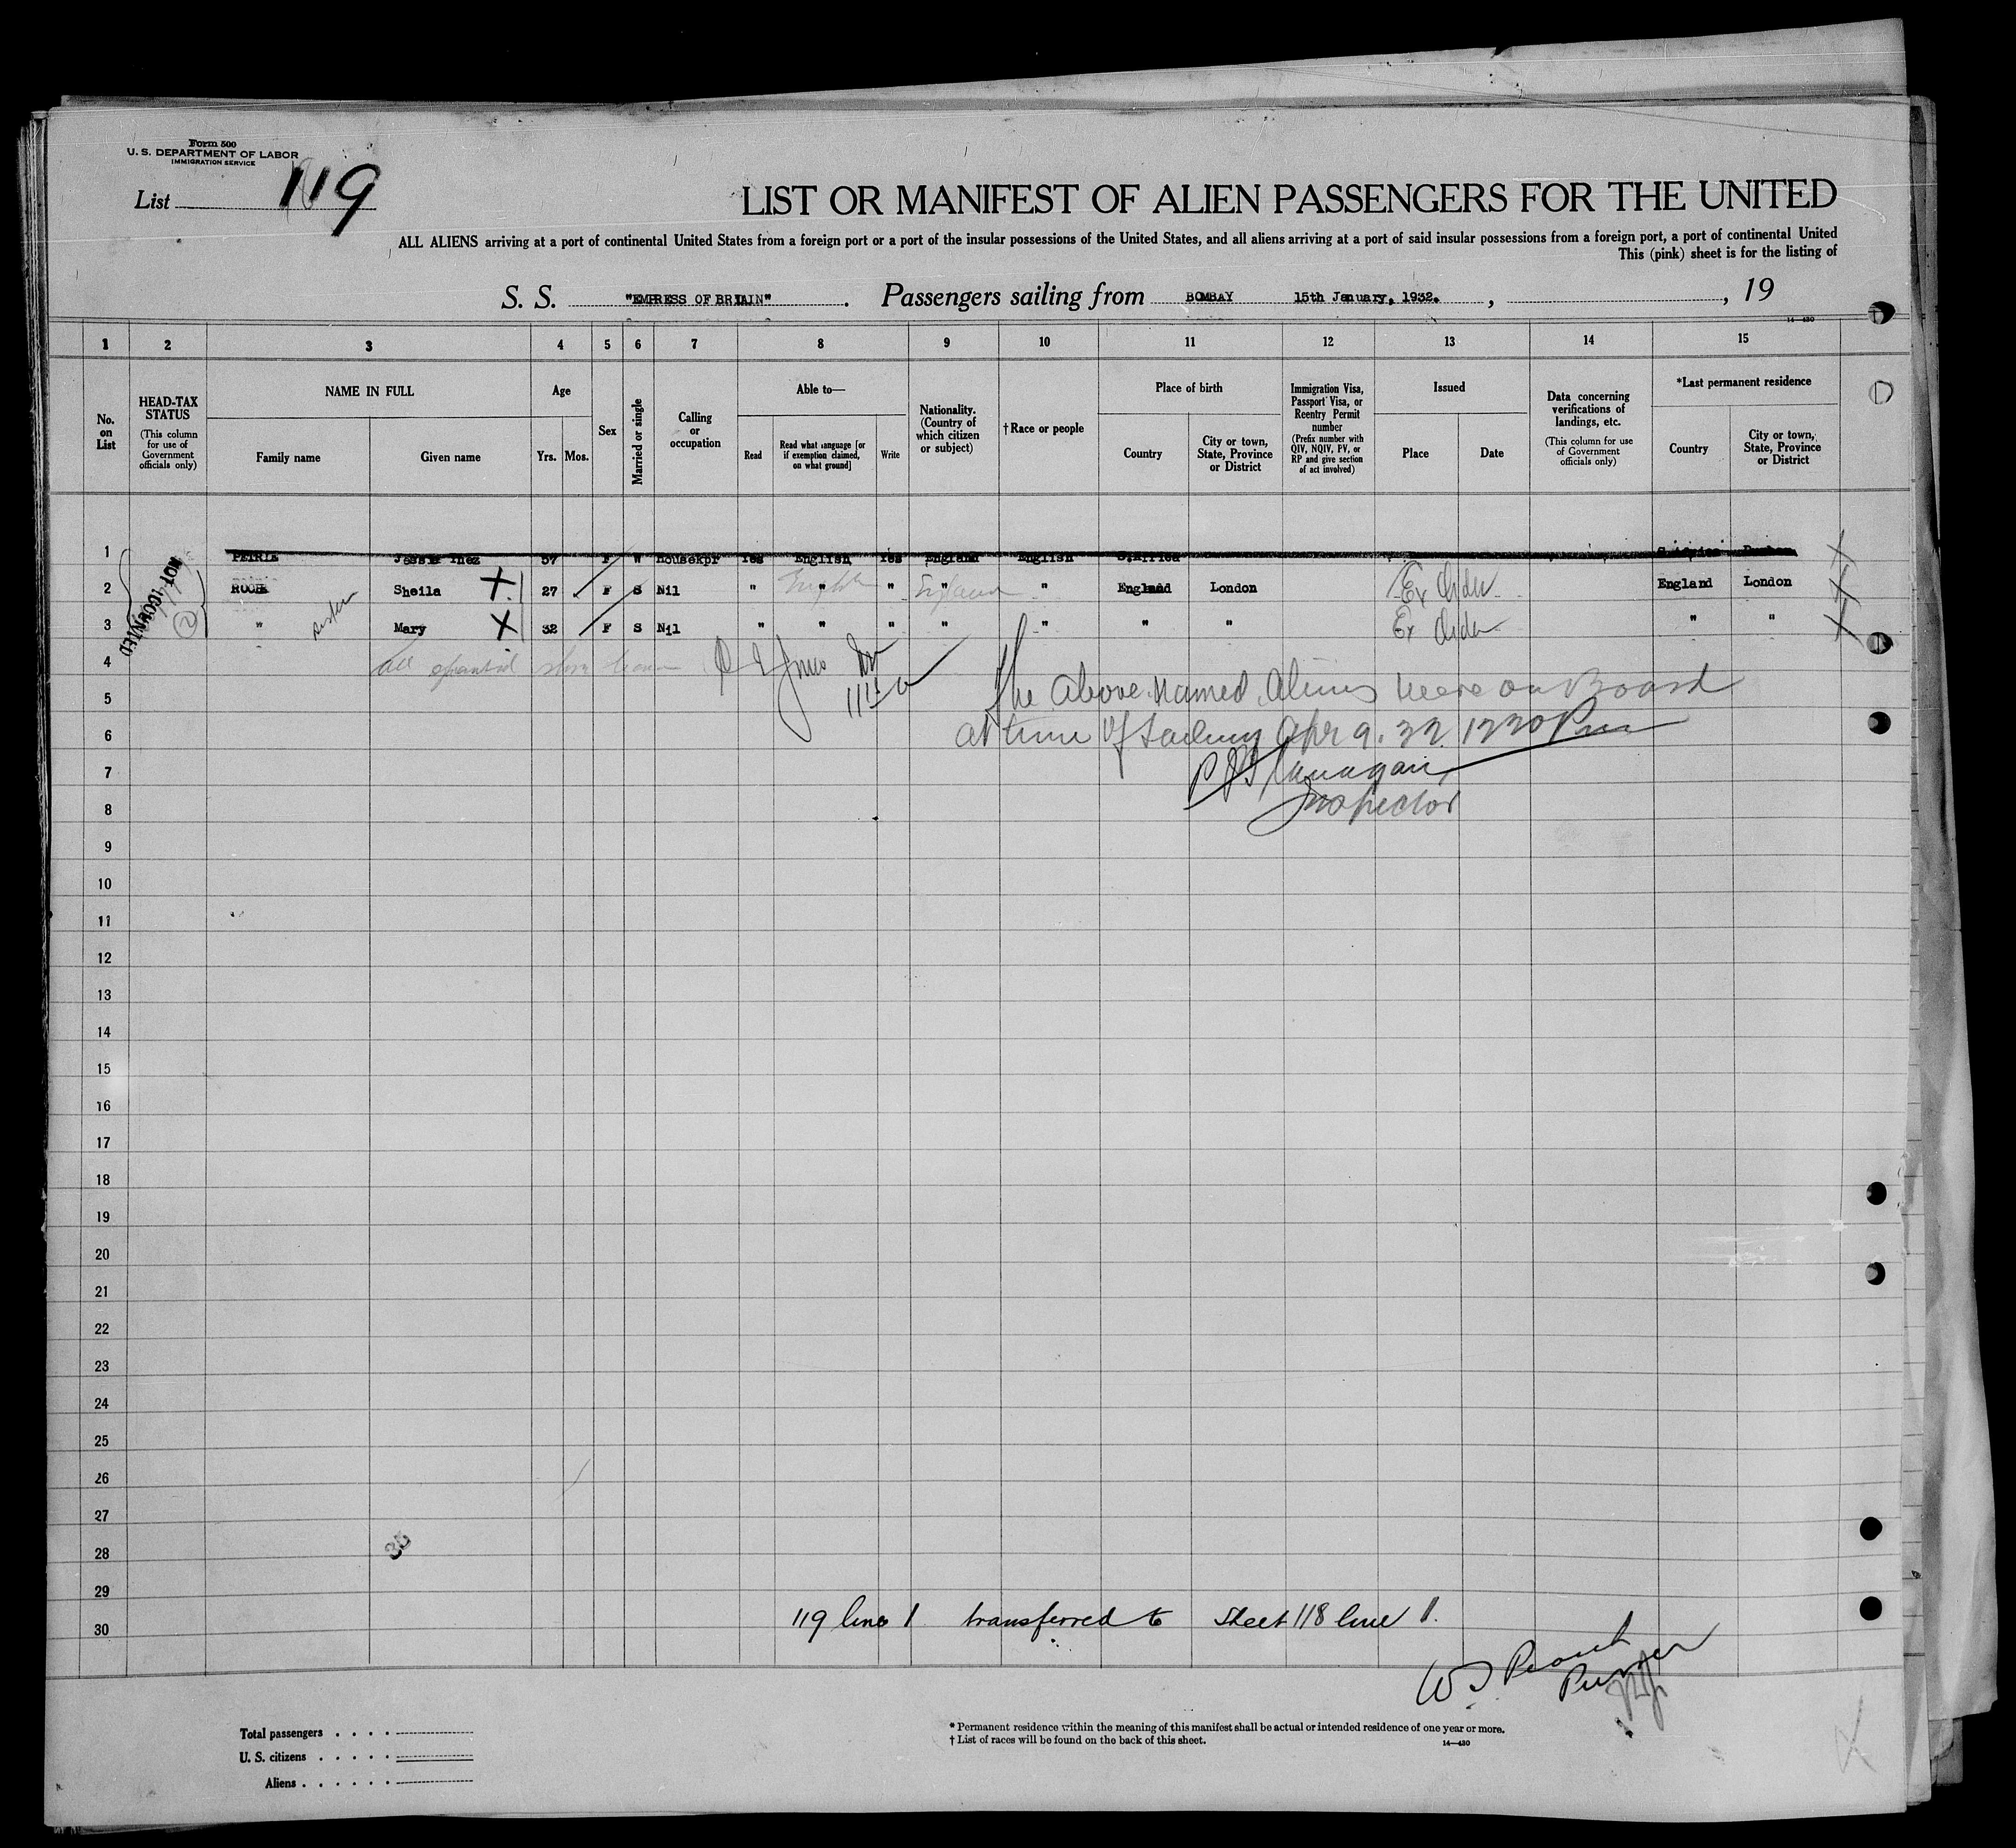 Form 500
U. S. DEPARTMENT OF LABOR
IMMIGRATION SERVICE
List 119
LIST OR MANIFEST OF ALIEN PASSENGERS FOR THE UNITED
ALL ALIENS arriving at a port of continental United States from a foreign port or a port of the insular possessions of the United States, and all aliens arriving at a port of said insular possessions from a foreign port, a port of continental United
This (pink) sheet is for the listing of
S. S. "EMPRESS OF BRIAIN". Passengers sailing from BOMBAY 15th January, 1932. , , 19
14—430
1 2 3 4 5 6 7 8 9 10 11 12 13 14 15
No. on List
HEAD-TAX STATUS (This column for use of Government officials only)
NAME IN FULL
Family name Given name
Age
Yrs. Mos.
Sex
Married or single
Calling or occupation
Able to—
Read
Read what language [or if exemption claimed, on what ground]
Write
Nationality. (Country of which citizen or subject)
†Race or people
Place of birth
Country
City or town, State, Province or District
Immigration Visa, Passport Visa, or Reentry Permit number (Prefix number with QIV, NQIV, PV, or RP and give section of act involved)
Issued
Place Date
Data concerning verifications of landings, etc. (This column for use of Government officials only)
*Last permanent residence
Country
City or town, State, Province or District
1 PETRIE Jessie Inez 57 F W Housekpr Yes English Yes England English S.Africa S.Africa Durban
2 Sheila X 27 F S Nil " " " " " England London Ex Order England London
3 " sister Mary X 32 F S Nil " " " " " " " Ex Order " "
NOT
2
4 all
The above named Aliens were on Board
5
at time of Sailing Apr 9. 32 1220 Pm
6
P J Flanagan
7
Inspector
8
9
10
11
12
13
14
15
16
17
18
19
20
21
22
23
24
25
26
27
28
29
30
119 line 1 transferred to Sheet 118 line 1.
Purser
Total passengers . . . .
U. S. citizens . . . . .
Aliens . . . . . .
* Permanent residence within the meaning of this manifest shall be actual or intended residence of one year or more.
† List of races will be found on the back of this sheet.
14—430